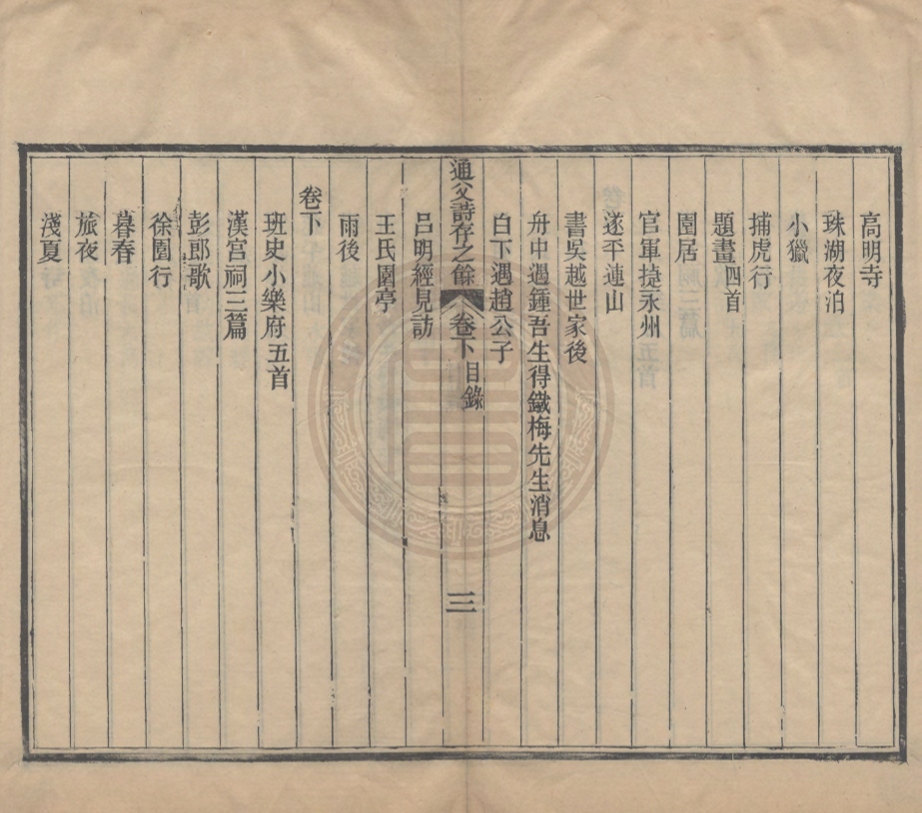 高明寺
珠湖夜泊
小獵
捕虎行
題畫四首
園居
官軍捷永州
遂平連山
書吳越世家後
舟中遇鍾吾生得鐵梅先生消息
白下遇趙公子
通父詩存之餘 卷下目錄 三
呂明經見訪
王氏園亭
雨後
卷下
班史小樂府五首
漢宮祠三篇
彭郎歌
徐園行
暮春
旅夜
淺夏